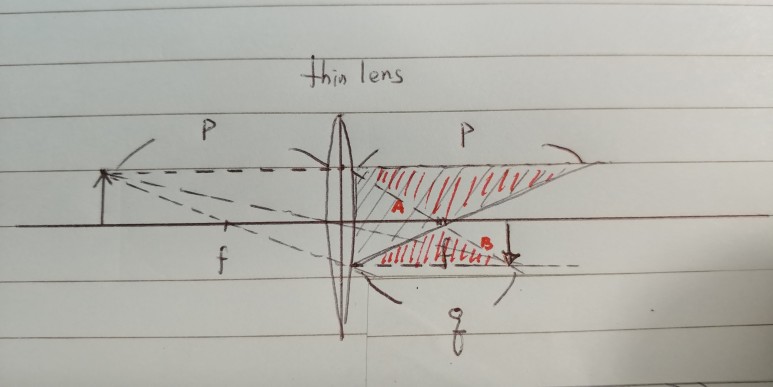 thin lens
P P
A
B
f f
q